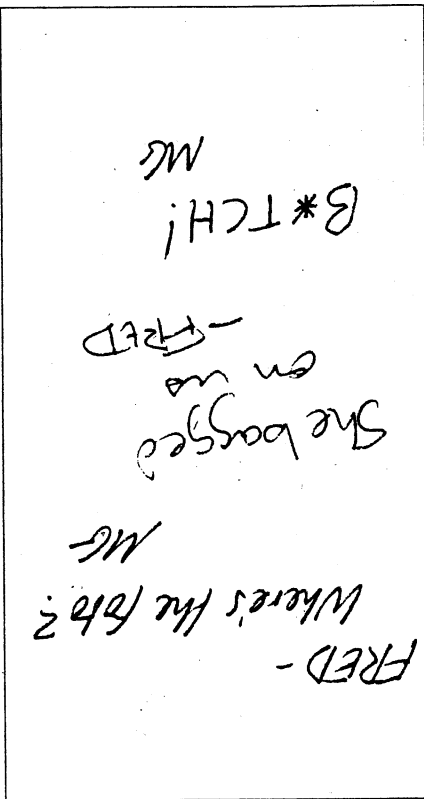 FRED -
Where's the foto?
MG
She bagged
on us
- FRED
B*TCH!
MG